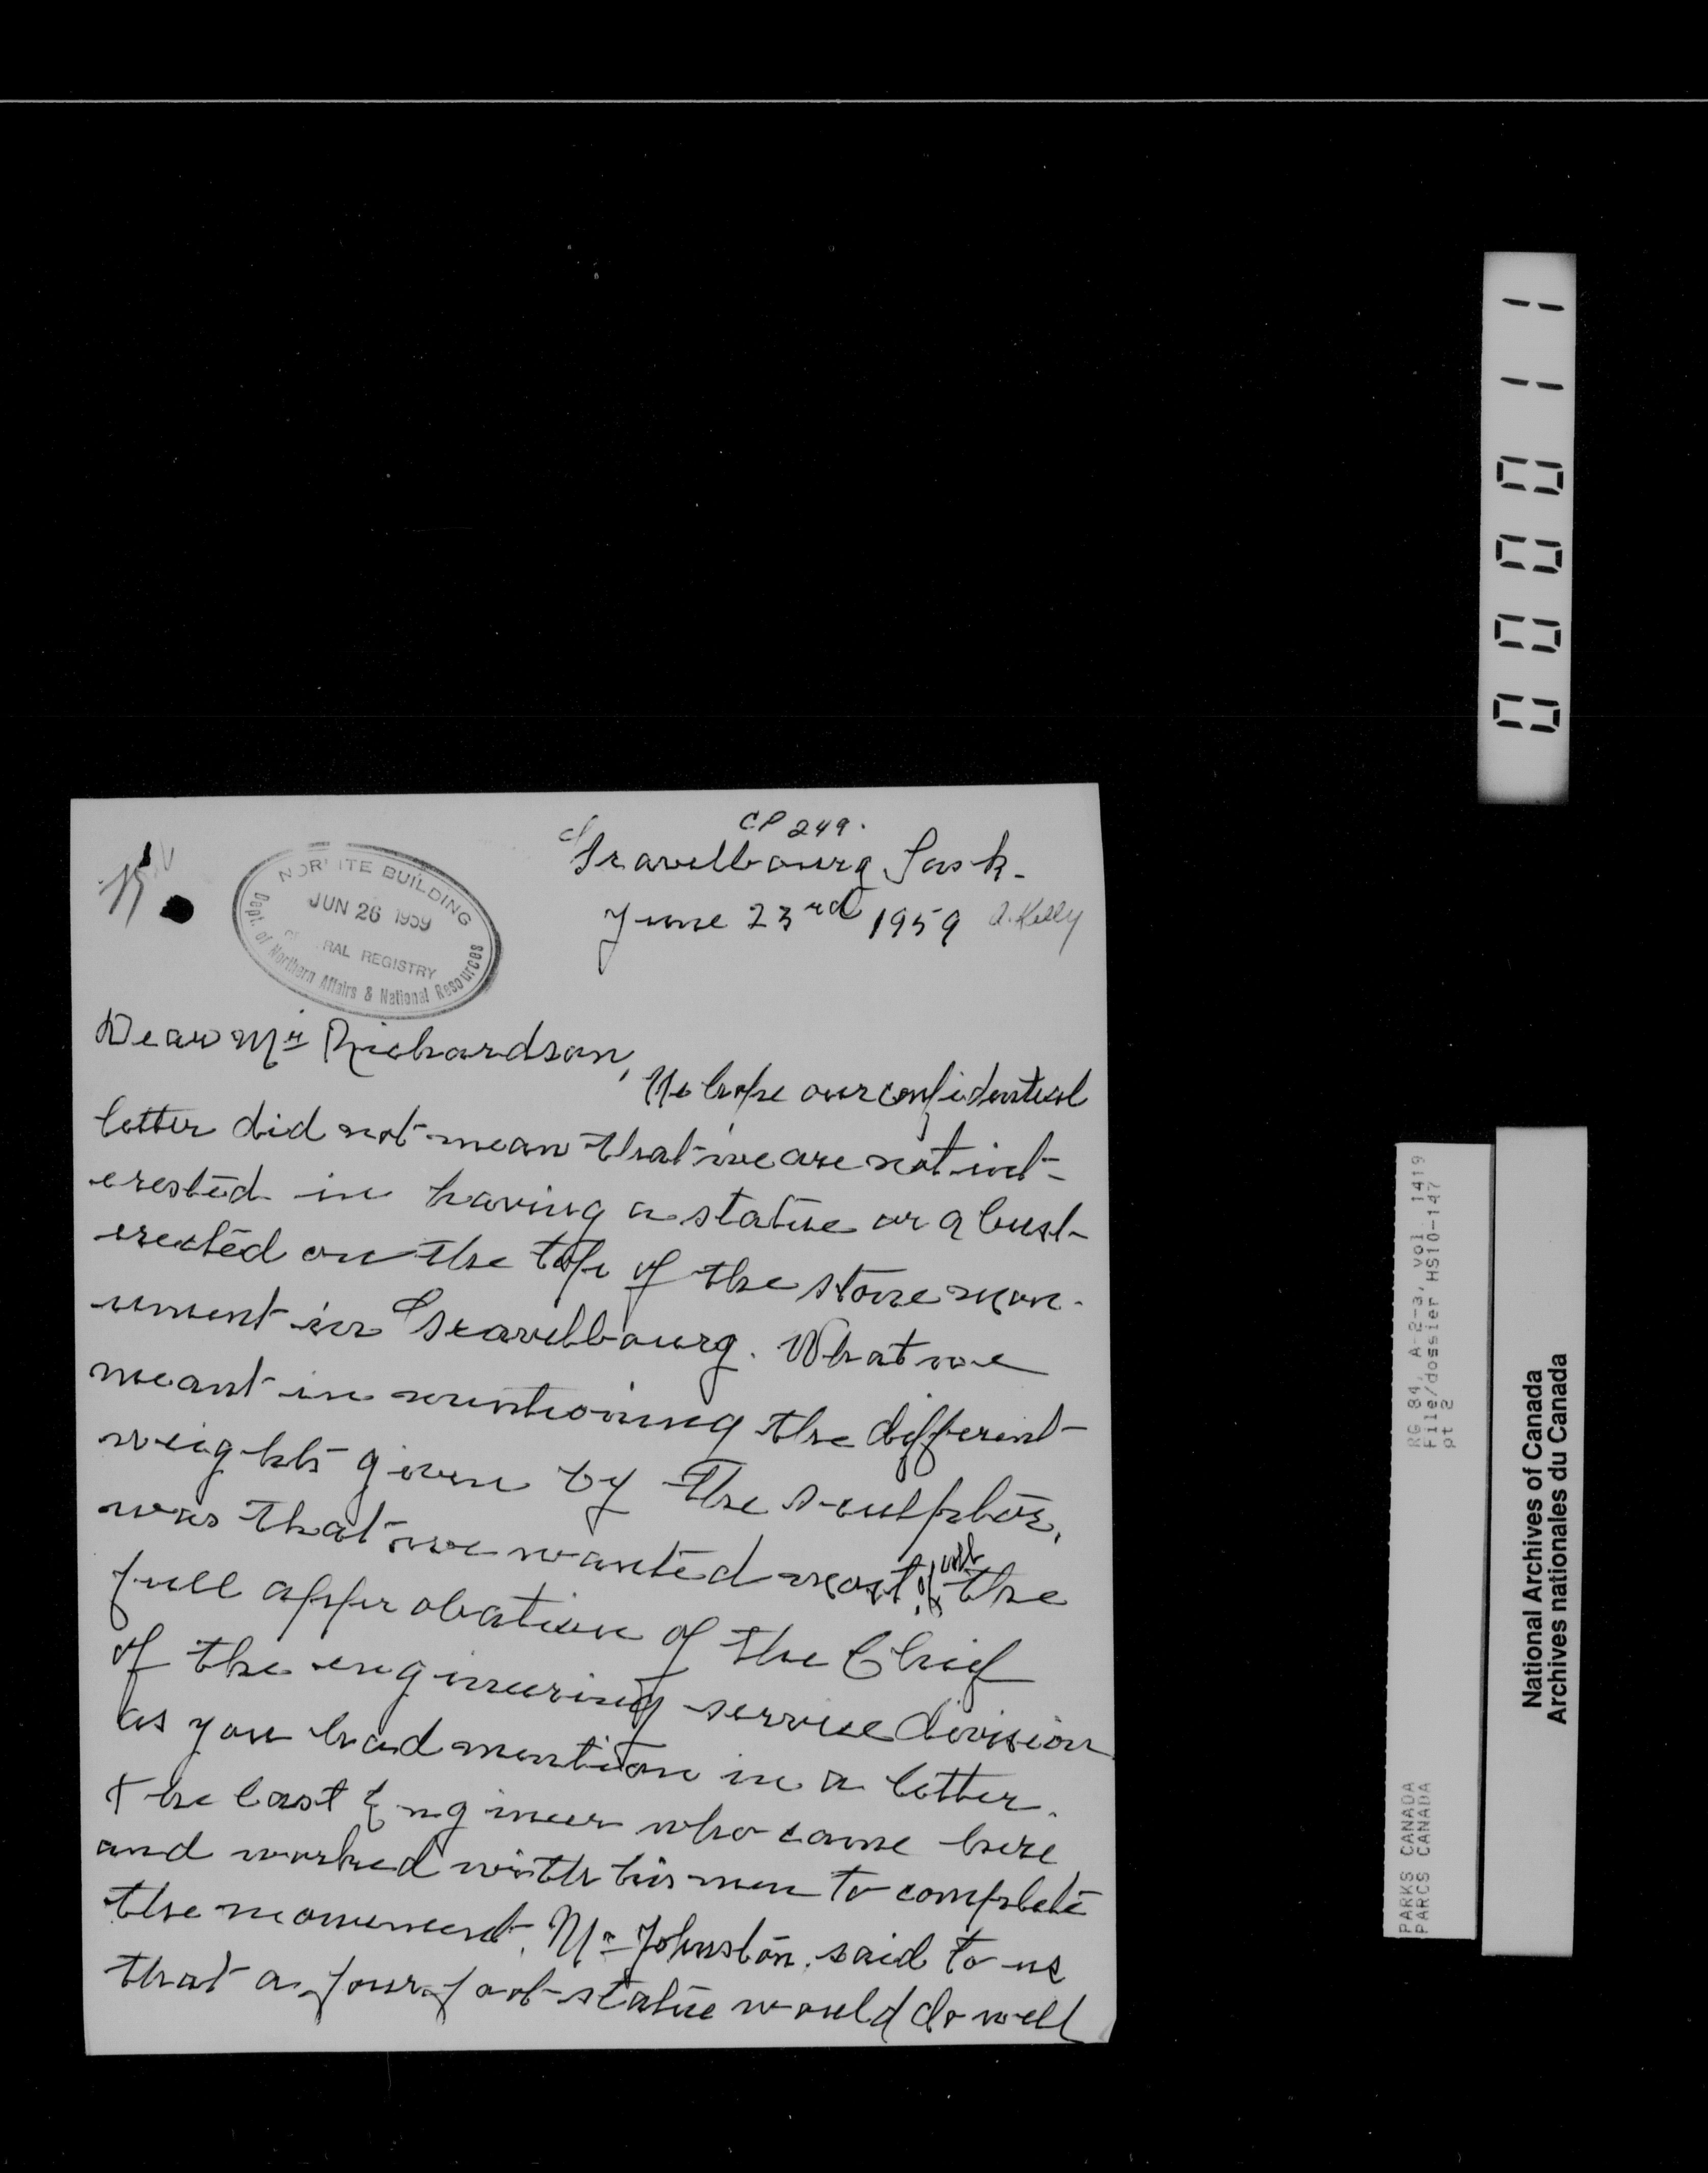 CP 249.
Gravelbourg Sask.
June 23rd 1959 A. Kelly
NOR ITE BUILDING
JUN 26 1959
RAL REGISTRY
Dept. of Northern Affairs & National Resources
Dear Mr Richardson,
We hope our confidential
letter did not mean that we are not int-
erested in having a statue or a bust
erected on the top of the stone mon-
ument in Gravelbourg. What we
meant in mentioning the different
weights given by the sculptor,
was that we wanted most of all the
full approbation of the Chief
of the engineering service division
as you had mention in a letter.
The last Engineer who came here
and worked with his men to complete
the monument, Mr Johnston, said to us
that a four foot statue would do well
000011
RG 84, A-2-a, vol. 1419
File/dossier HS10-147
pt 2
PARKS CANADA
PARCS CANADA
National Archives of Canada
Archives nationales du Canada